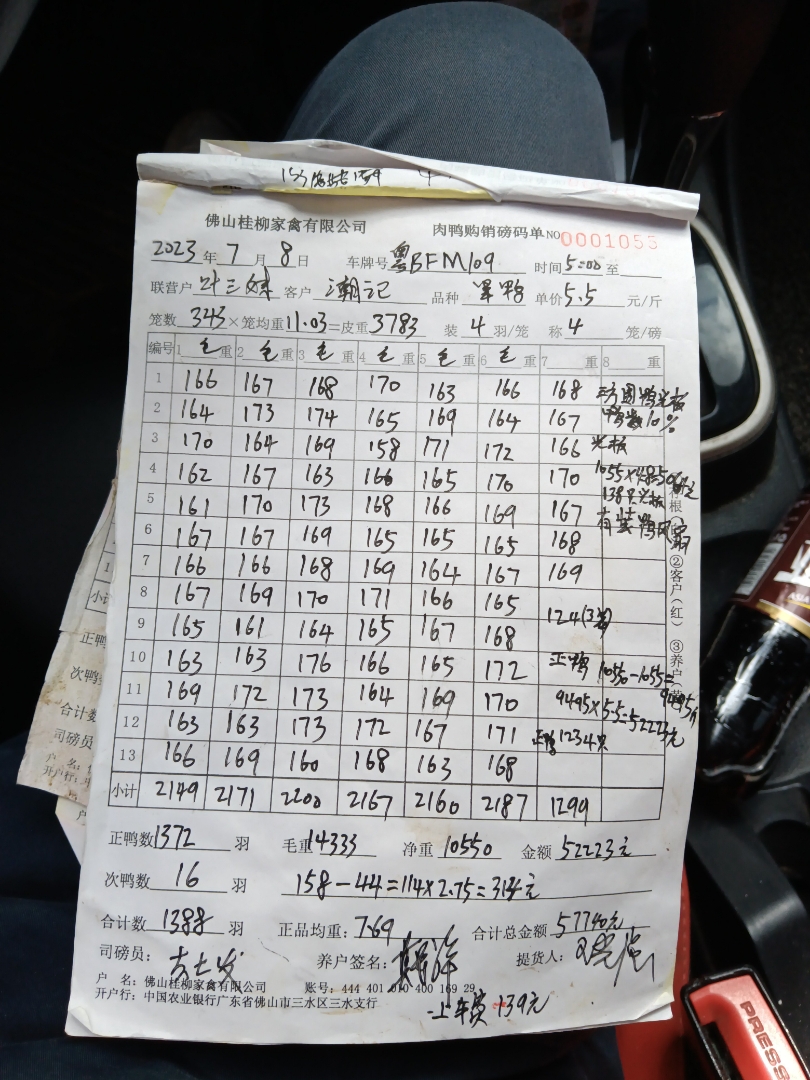 佛山桂柳家禽有限公司 肉鸭购销磅码单 NO 0001055
2023年 7月 8日 车牌号 粤BFM109 时间 5:00 至
联营户 叶三妹 客户 潮记 品种 单价 5.5 元/斤
笼数 343 ×笼均重 11.03 =皮重 3783 装 4 羽/笼 称 4 笼/磅
编号 1 毛 重 2 毛 重 3 毛 重 4 毛 重 5 毛 重 6 毛 重 7 重 8 重
1 166 167 168 170 163 166 168
2 164 173 174 165 169 164 167 鸭数10%
3 170 164 169 158 171 172 166 光板
4 162 167 163 166 165 170 170
5 161 170 173 168 166 169 167
6 167 167 169 165 165 165 168
7 166 166 168 169 164 167 169
8 167 169 170 171 166 165
9 165 161 164 165 167 168 124(3笼)
10 163 163 176 166 165 172 正鸭 10550-1055=
11 169 172 173 164 169 170 9495×5.5=52223元
12 163 163 173 172 167 171 正鸭1234只
13 166 169 160 168 163 168
小计 2149 2171 2200 2167 2160 2187 1299
②客户(红) ③养户
正鸭数 1372 羽 毛重 14333 净重 10550 金额 52223元
次鸭数 16 羽 158-44=114×2.75=314元
合计数 1388 羽 正品均重: 7.69 合计总金额 57740元
司磅员: 养户签名: 提货人:
户 名: 佛山桂柳家禽有限公司 账号: 444 401 010 400 169 29
开户行: 中国农业银行广东省佛山市三水区三水支行
上车费 139元
PRESS